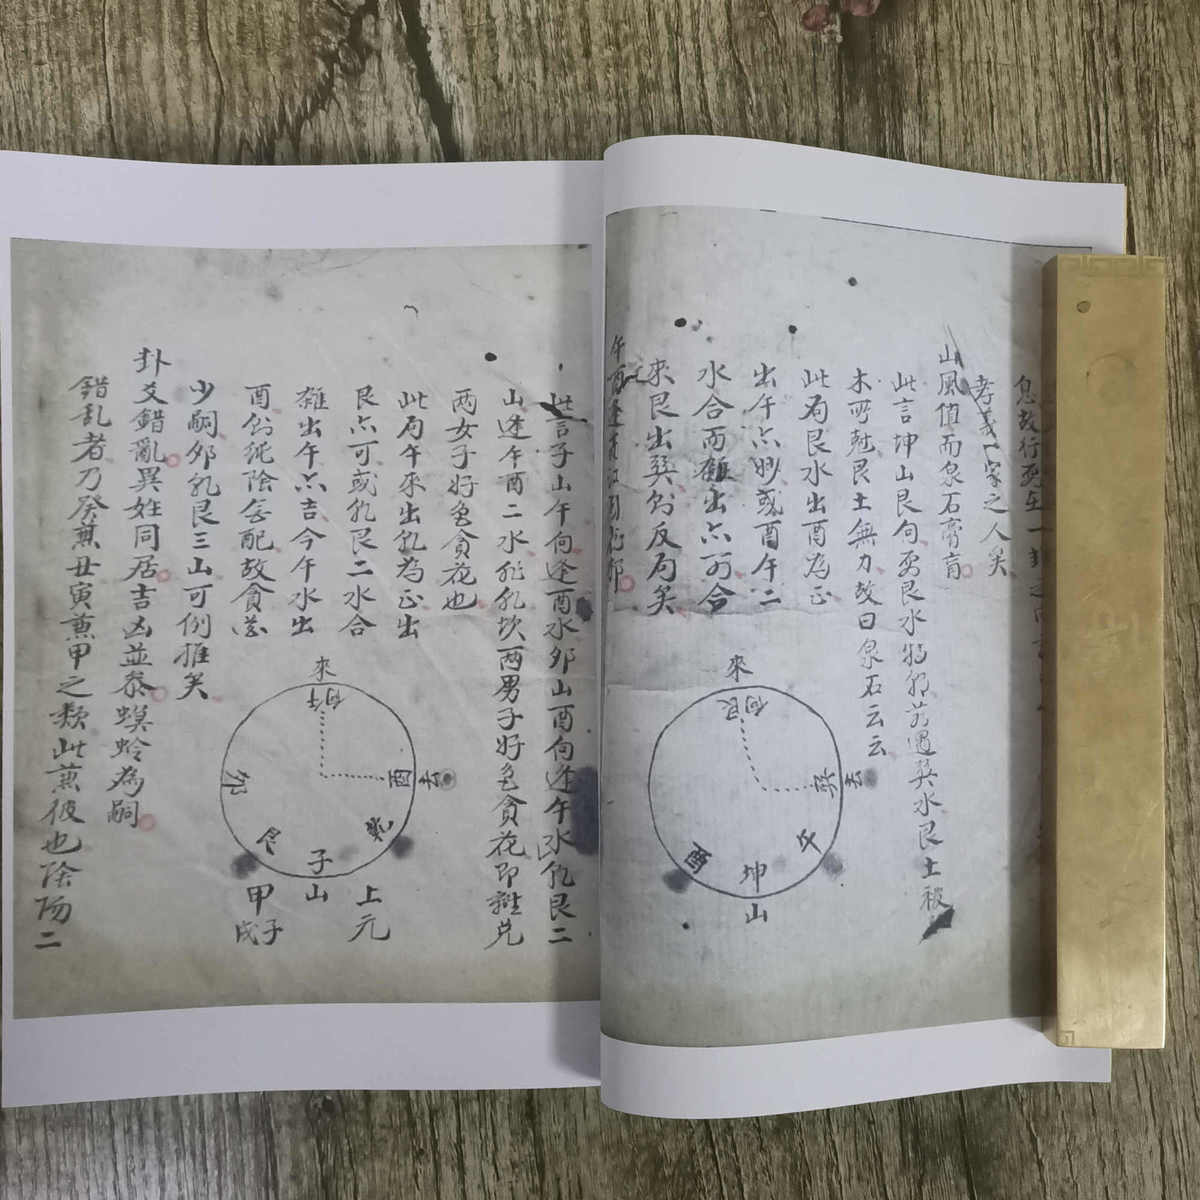 孝義一家之人矣
山風值而泉石膏肓
此言坤山艮向更艮水特朝若遇巽水艮土被
木所尅艮土無力故曰泉石云云
此局艮水出酉為正
出午亦妙或酉午二
水合而雜出亦可合
來艮出巽則反局矣
來
向艮
巽
去
午
酉
坤
山
午酉逢
此言子山午向逢酉水卯山酉向逢午水乹艮二
山逢午酉二水非乹坎两男子好色貪花即離兑
两女子好色貪花也
此局午來出乹為正出
艮亦可或乹艮二水合
雜出午亦吉今午水出
酉則純陰無配故貪花
少嗣卯乹艮三山可例推矣
來
向午
酉
去
卯
乾
艮
子
山
上元
甲子
戌
卦爻錯亂異姓同居吉凶並泰螟蛉為嗣
錯乱者乃癸兼丑寅兼甲之類此兼彼也陰陽二